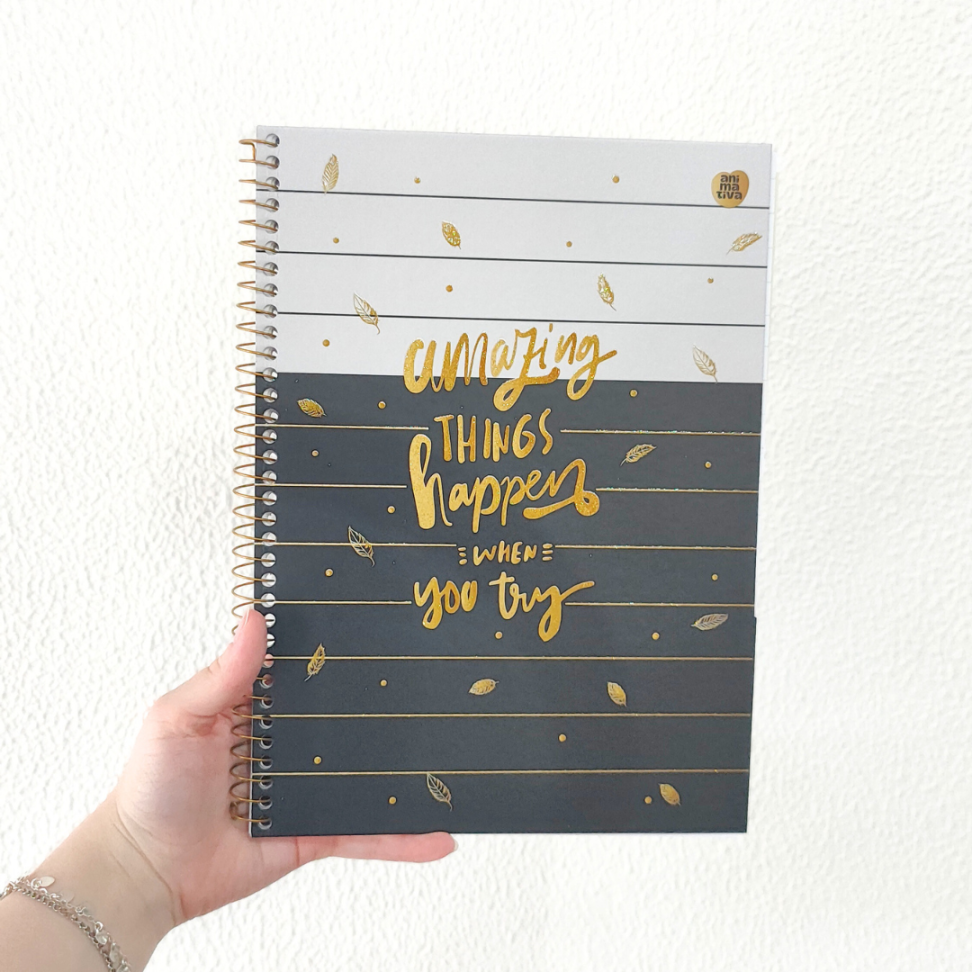 ani
ma
tiva
amazing
THINGS
happen
WHEN
you try